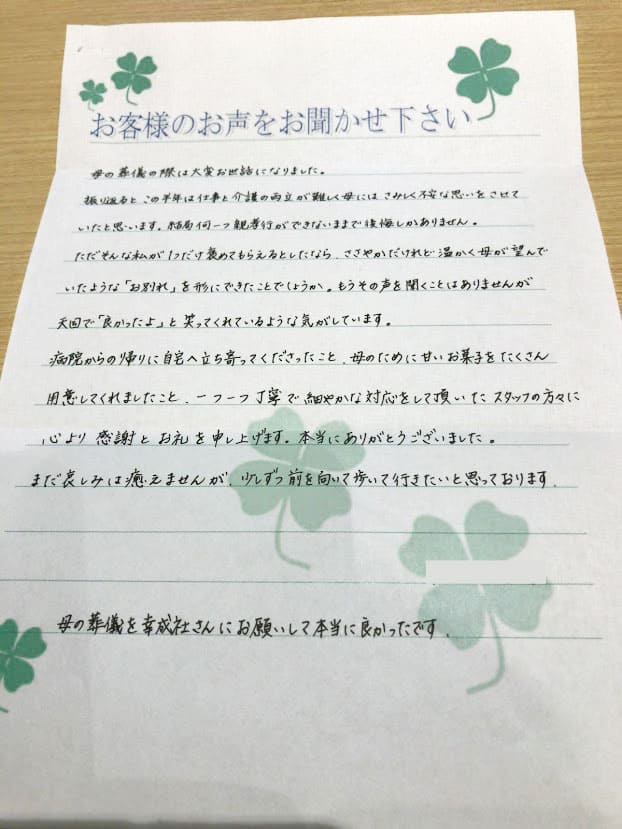 お客様のお声をお聞かせ下さい
母の葬儀の際は大変お世話になりました。
振り返ると この半年は仕事と介護の両立が難しく母には さみしく不安な思いをさせて
いたと思います。結局何一つ親孝行ができないままで後悔しかありません。
ただそんな私が1つだけ褒めてもらえるとしたなら、ささやかだけれど温かく母が望んで
いたような「お別れ」を形にできたことでしょうか。もうその声を聞くことはありませんが
天国で「良かったよ」と笑ってくれているような気がしています。
病院からの帰りに自宅へ立ち寄ってくださったこと、母のために甘いお菓子をたくさん
用意してくれましたこと、一つ一つ丁寧で細やかな対応をして頂いたスタッフの方々に
心より感謝とお礼を申し上げます。本当にありがとうございました。
まだ哀しみは癒えませんが、少しずつ前を向いて歩いて行きたいと思っております。
母の葬儀を幸成社さんにお願いして本当に良かったです。